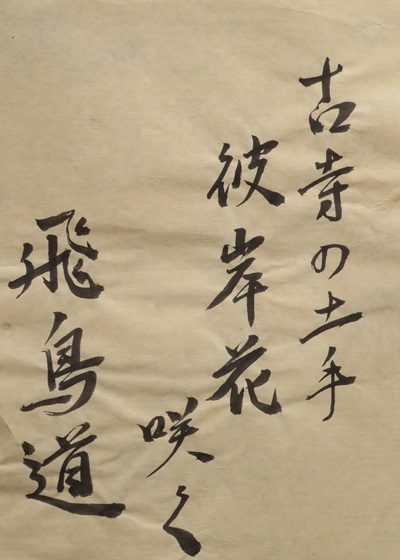 古寺の土手
彼岸花
咲く
飛鳥道